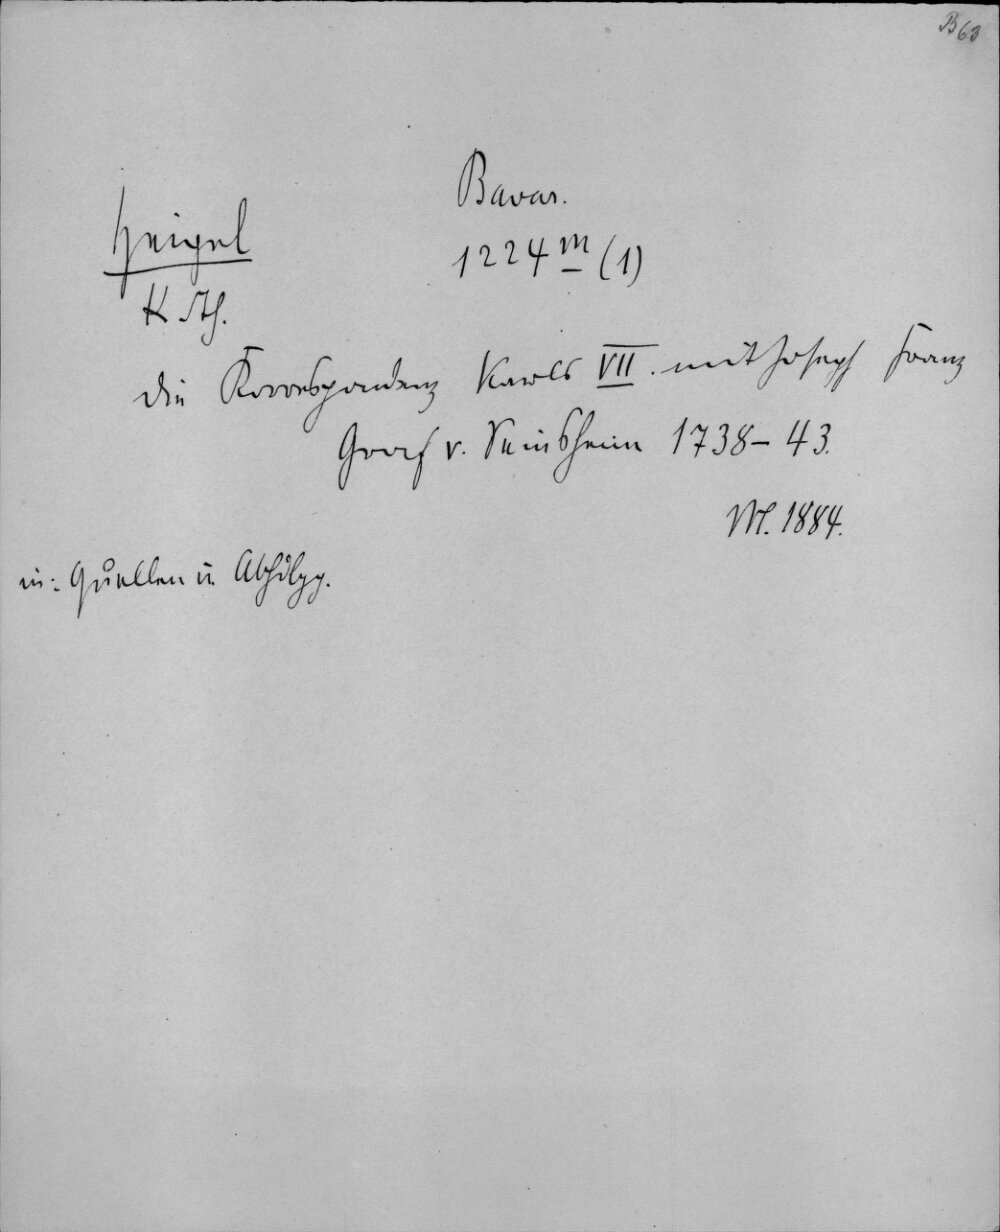 B63
Bavar.
1224 m (1)
Heigel
K. Th.
die Korrespondenz Karls VII. mit Joseph Franz
Graf v. Seinsheim 1738-43.
M. 1884.
in: Quellen u. Abhdlgg.